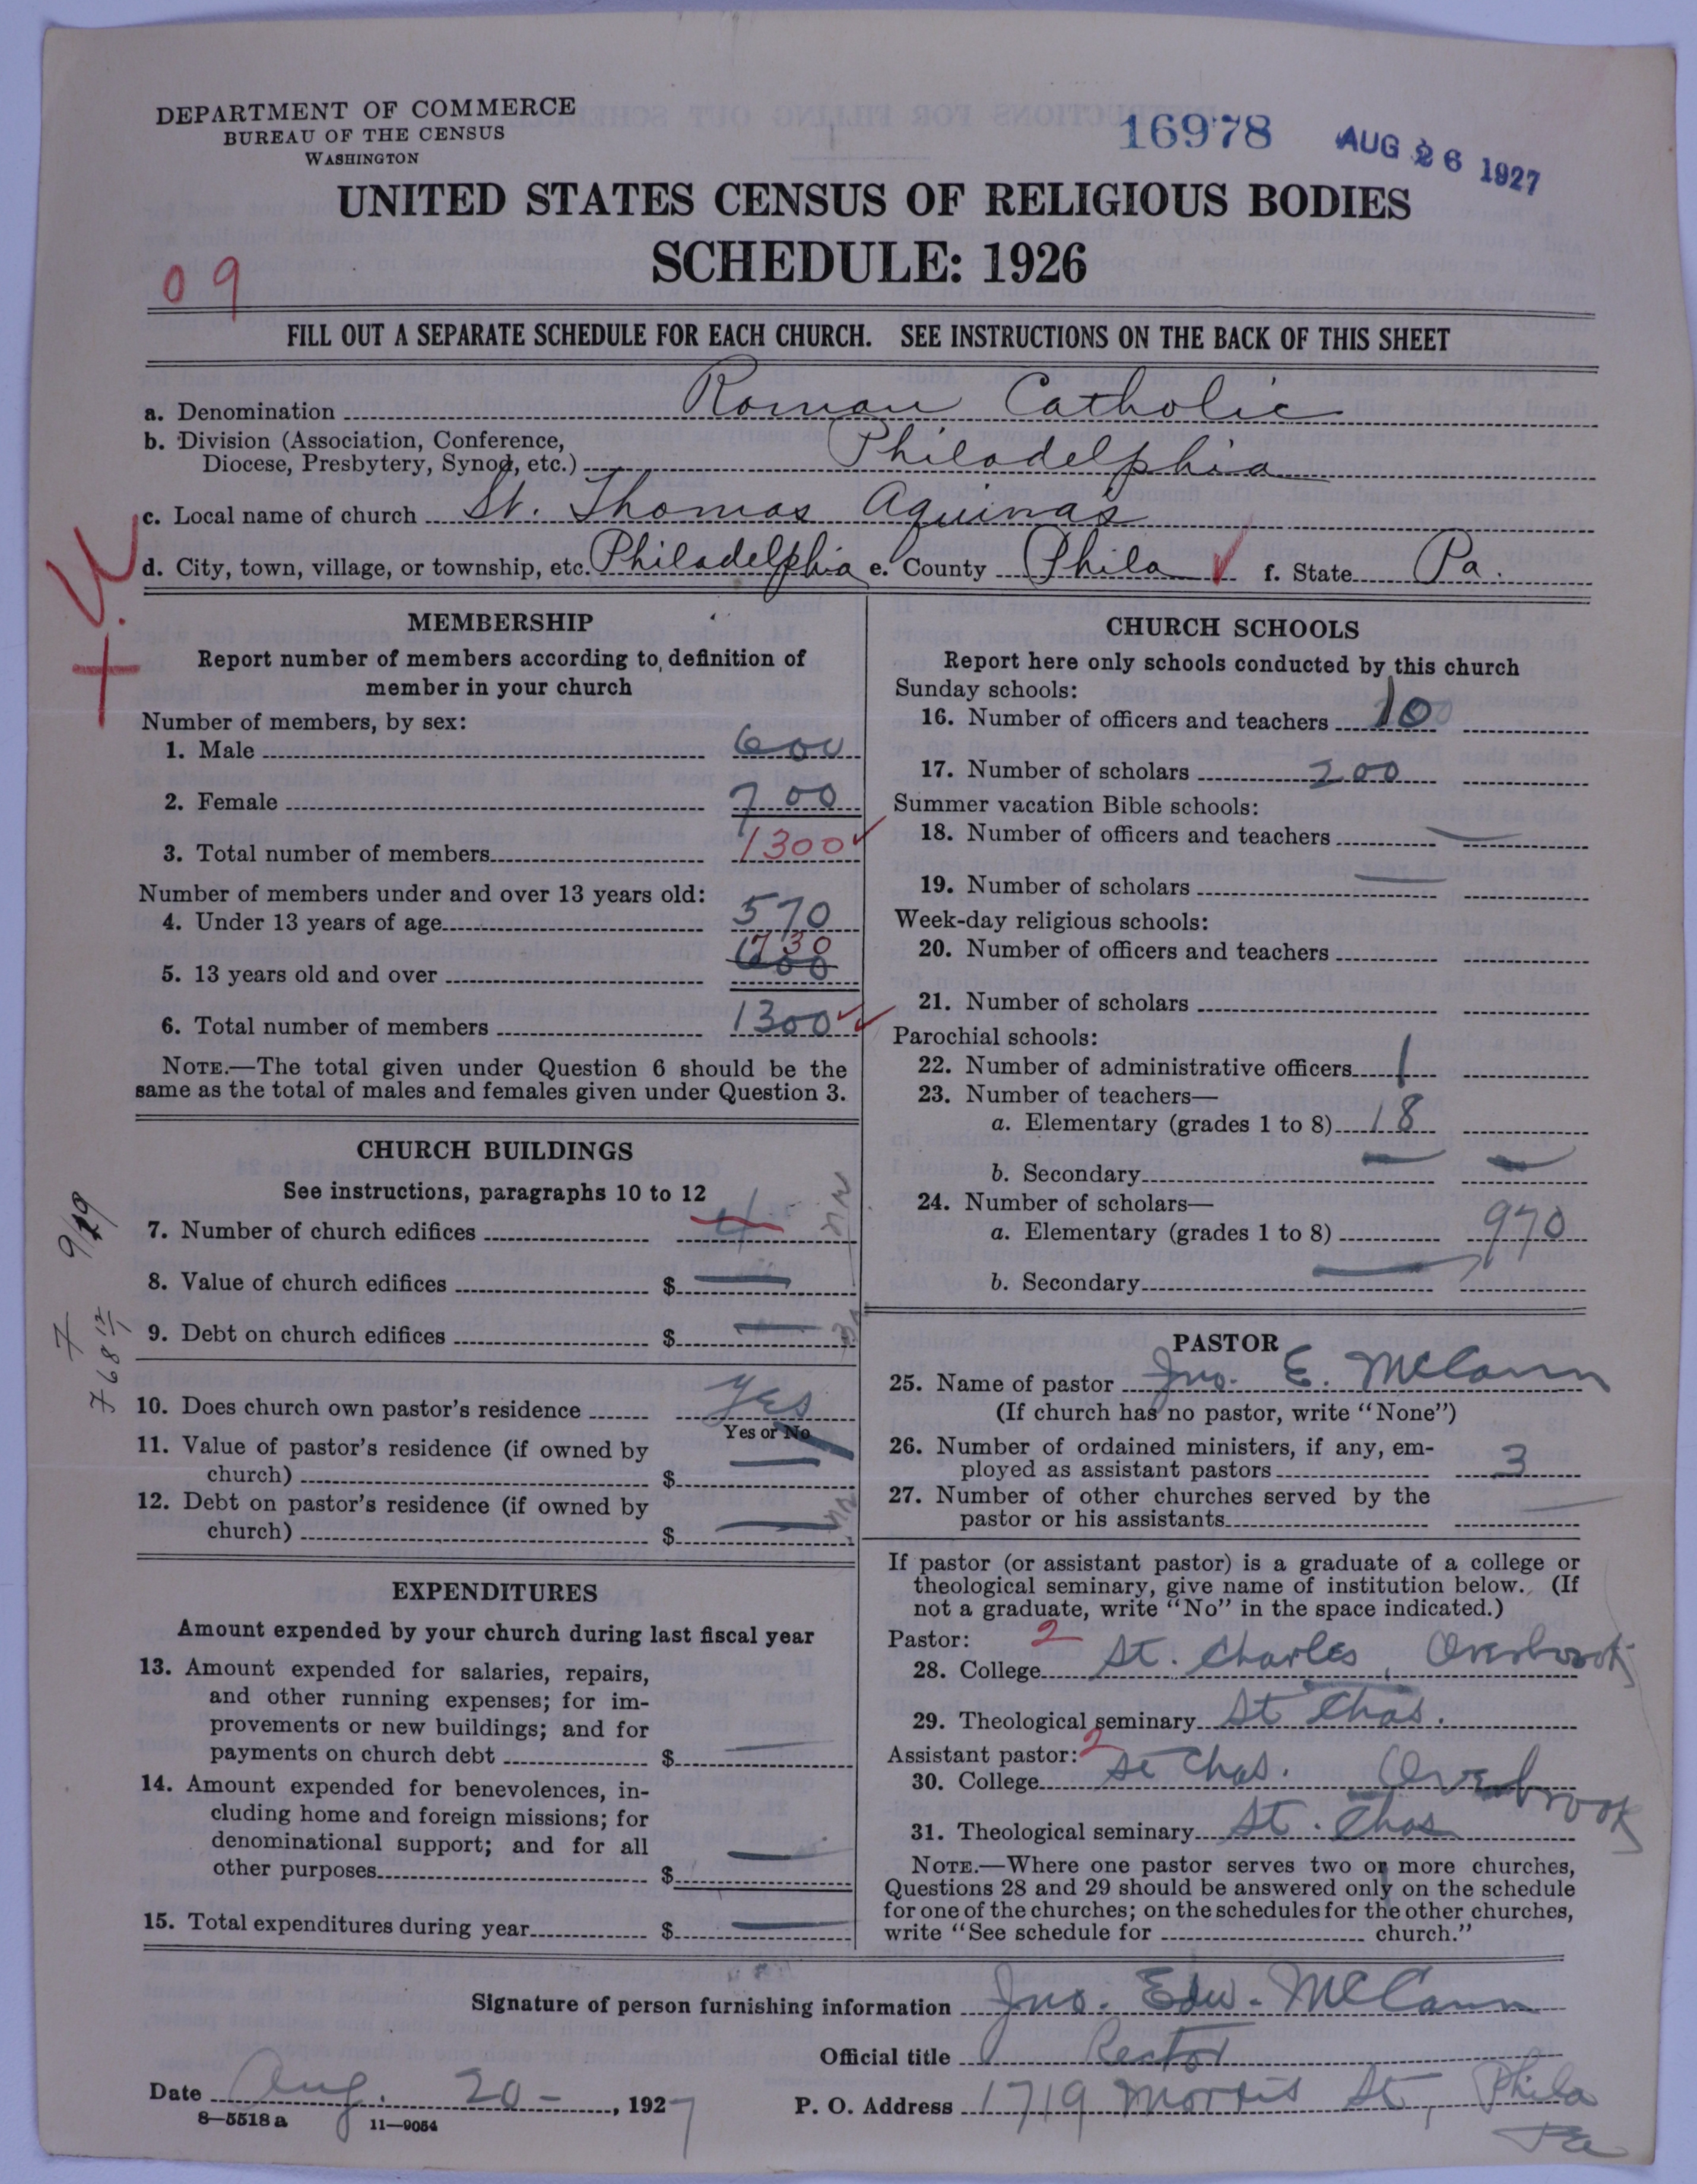 DEPARTMENT OF COMMERCE
BUREAU OF THE CENSUS
WASHINGTON
16978
AUG 26 1927
UNITED STATES CENSUS OF RELIGIOUS BODIES
SCHEDULE: 1926
09
FILL OUT A SEPARATE SCHEDULE FOR EACH CHURCH. SEE INSTRUCTIONS ON THE BACK OF THIS SHEET
a. Denomination Roman Catholic
b. Division (Association, Conference,
Diocese, Presbytery, Synod, etc.) Philadelphia
c. Local name of church St. Thomas Aquinas
d. City, town, village, or township, etc. Philadelphia e. County Phila f. State Pa.
MEMBERSHIP
Report number of members according to definition of
member in your church
Number of members, by sex:
1. Male 600
2. Female 700
3. Total number of members 1300
Number of members under and over 13 years old:
4. Under 13 years of age 570
730
5. 13 years old and over 600
6. Total number of members 1300
NOTE.—The total given under Question 6 should be the
same as the total of males and females given under Question 3.
CHURCH BUILDINGS
See instructions, paragraphs 10 to 12
7. Number of church edifices 4
8. Value of church edifices $
9. Debt on church edifices $
10. Does church own pastor's residence Yes
Yes or No
11. Value of pastor's residence (if owned by
church) $
12. Debt on pastor's residence (if owned by
church) $
EXPENDITURES
Amount expended by your church during last fiscal year
13. Amount expended for salaries, repairs,
and other running expenses; for im-
provements or new buildings; and for
payments on church debt $
14. Amount expended for benevolences, in-
cluding home and foreign missions; for
denominational support; and for all
other purposes $
15. Total expenditures during year $
CHURCH SCHOOLS
Report here only schools conducted by this church
Sunday schools:
16. Number of officers and teachers 10
17. Number of scholars 200
Summer vacation Bible schools:
18. Number of officers and teachers —
19. Number of scholars —
Week-day religious schools:
20. Number of officers and teachers
21. Number of scholars
Parochial schools:
22. Number of administrative officers 1
23. Number of teachers—
a. Elementary (grades 1 to 8) 18
b. Secondary —
24. Number of scholars—
a. Elementary (grades 1 to 8) 970
b. Secondary —
PASTOR
25. Name of pastor Jno. E. McCann
(If church has no pastor, write "None")
26. Number of ordained ministers, if any, em-
ployed as assistant pastors 3
27. Number of other churches served by the
pastor or his assistants —
If pastor (or assistant pastor) is a graduate of a college or
theological seminary, give name of institution below. (If
not a graduate, write "No" in the space indicated.)
Pastor: 2
28. College St. Charles, Overbrook
29. Theological seminary St Chas.
Assistant pastor: 2
30. College St Chas. Overbrook
31. Theological seminary St. Chas
NOTE.—Where one pastor serves two or more churches,
Questions 28 and 29 should be answered only on the schedule
for one of the churches; on the schedules for the other churches,
write "See schedule for church."
Signature of person furnishing information Jno. Edw. McCann
Official title Rector
Date Aug. 20 -, 1927
P. O. Address 1719 Morris St, Phila
Pa
8—5518a 11—9054